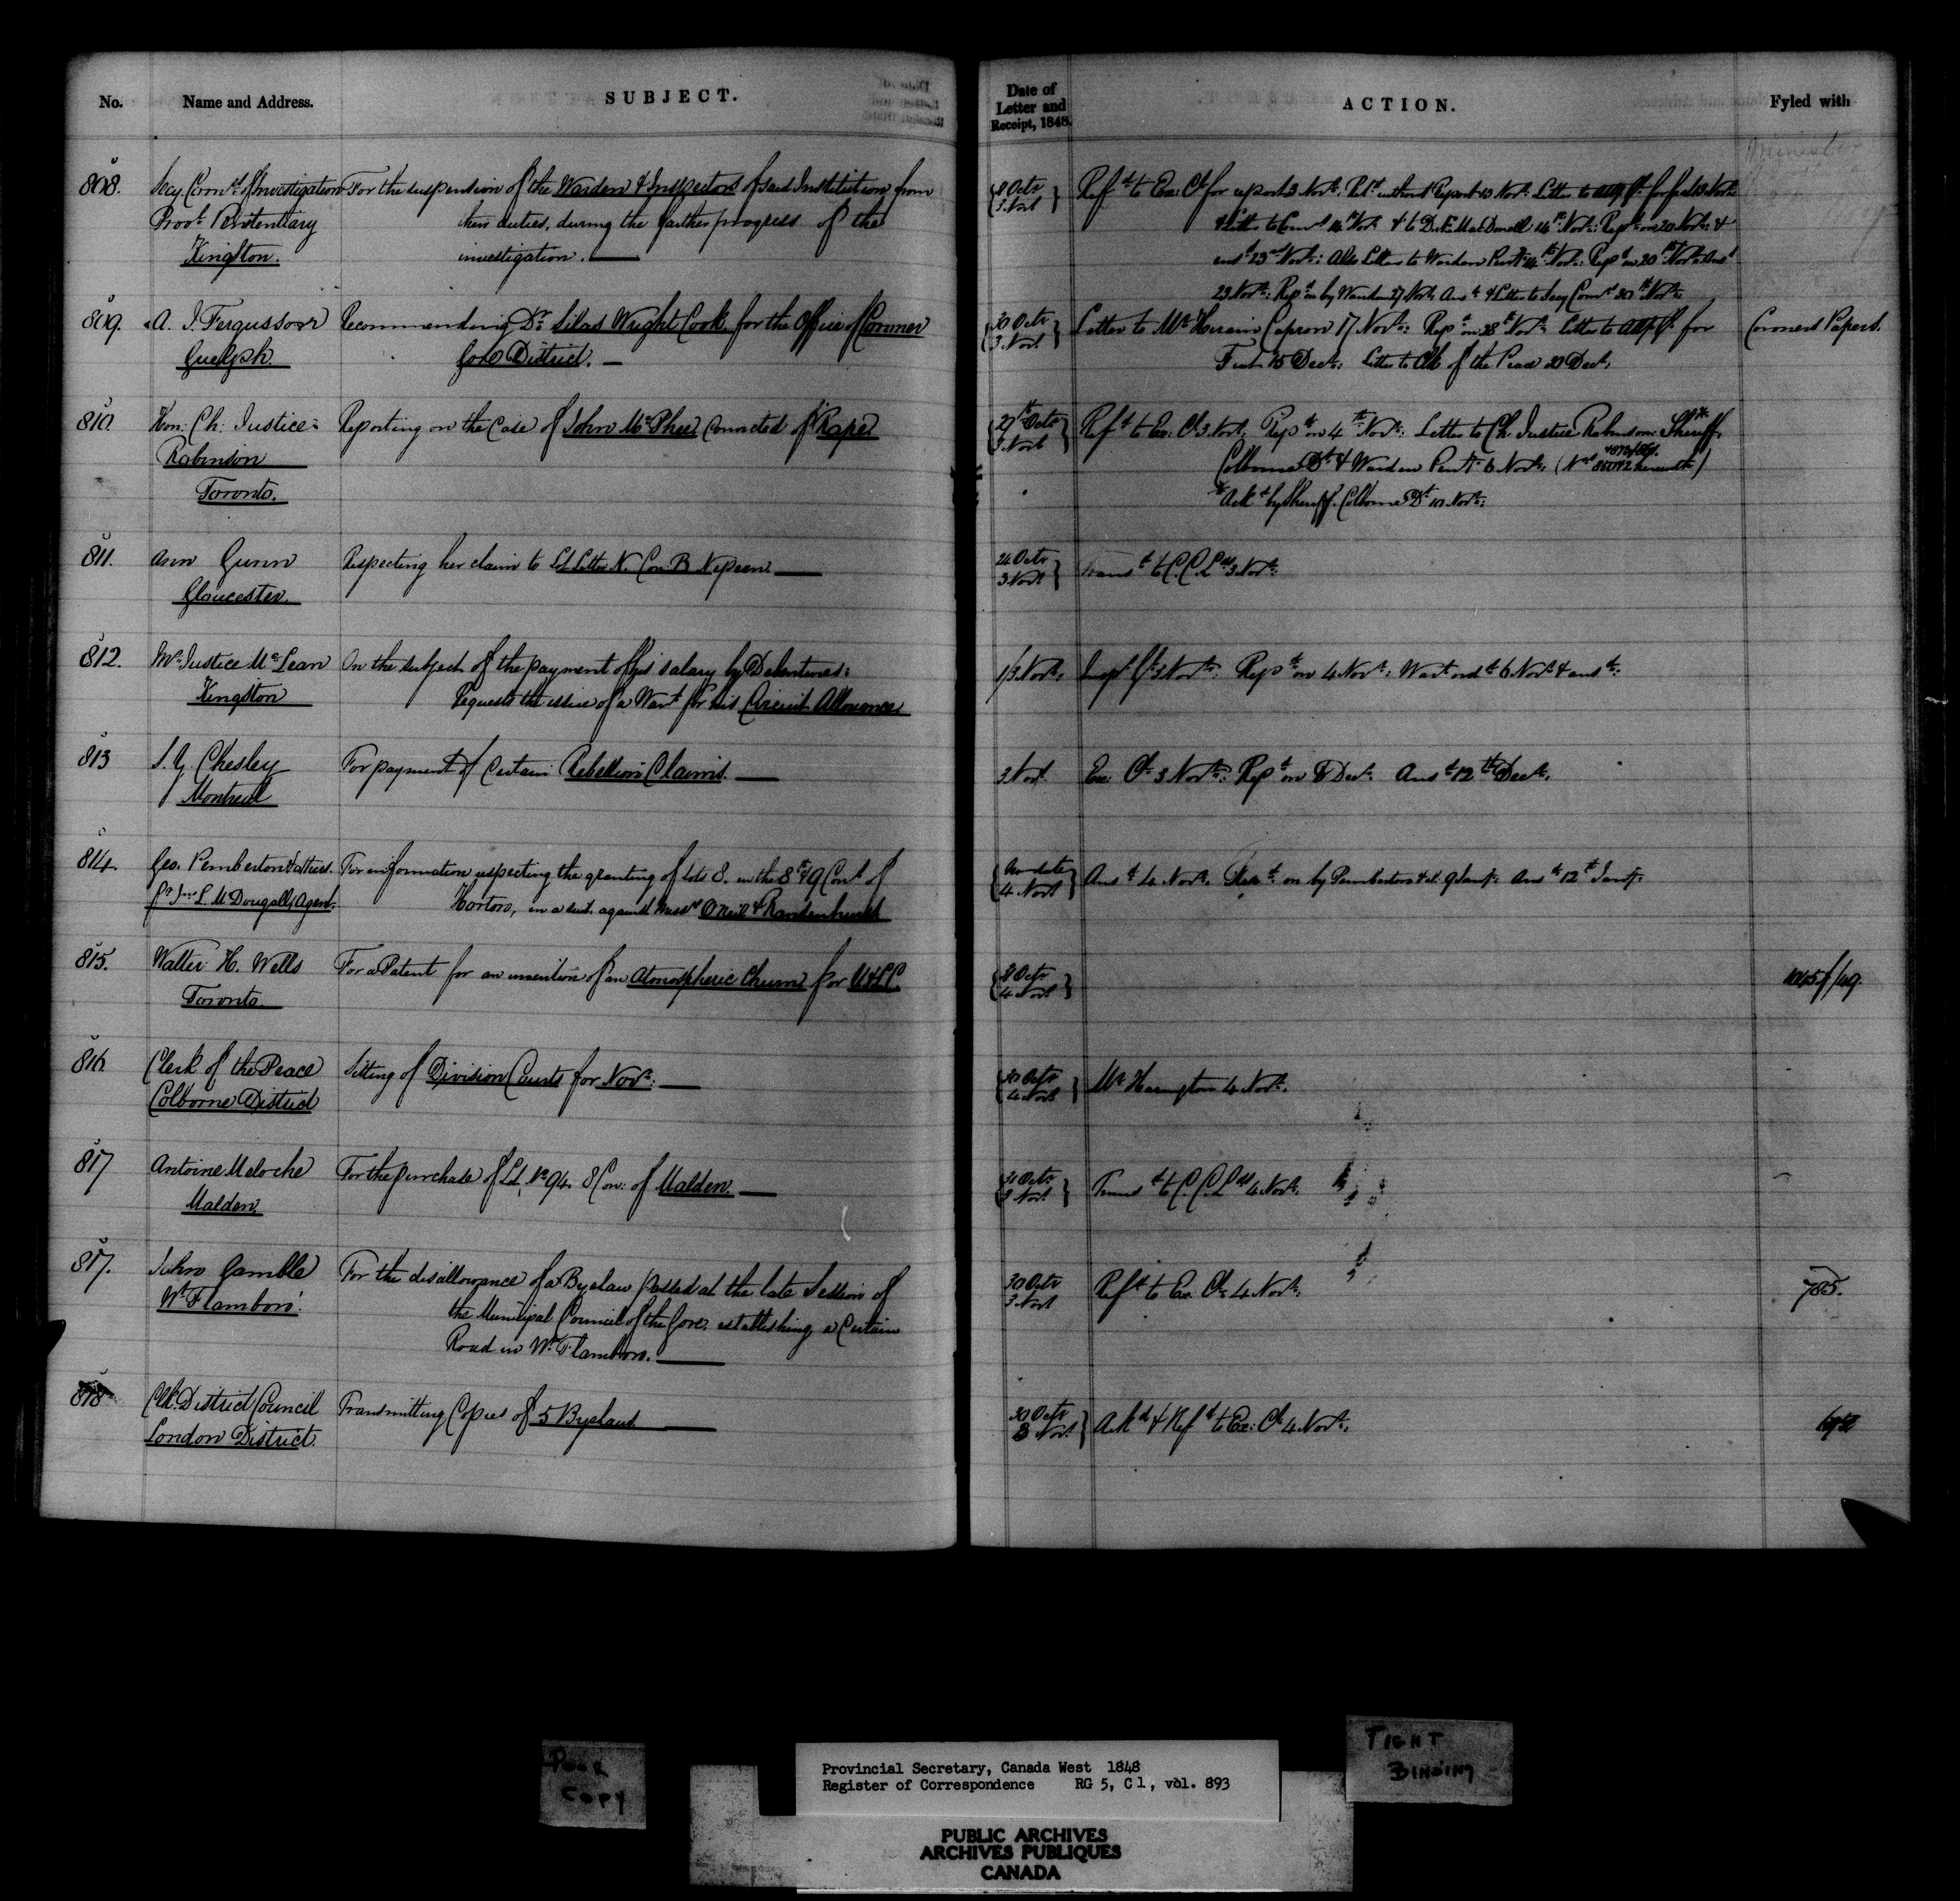 No. Name and Address. SUBJECT.
Date of Letter and Receipt, 1848. ACTION. Fyled with
808. Secy Comrs of Investigation For the suspension of the Warden & Inspectors of said Institution from
Provl Penitentiary their duties, during the further progress of the
Kingston. investigation.
3 Novr Refd to Ex: Cl for report 3 Novr: Retd without Report 13 Novr: Letter to for fiat 13 Novr:
& Letter to Comrs 14 Novr & to D. Æ. MacDonell 14th Novr: Repd on 20 Novr: &
ansd 23rd Novr: Also Letter to Warden Penty 14th Novr: Repd on 20th Novr: Ansd
23 Novr: Repd on by Warden 27 Novr Ansd & Letter to Secy Comrs 30th Novr:
809. A. J. Fergusson Recommending Dr Silas Wright Cook for the Office of Coroner
Guelph. Gore District.
30 Octr
3 Novr
Letter to Mr Hiram Capron 17 Novr: Repd on 28th Novr: Letter to for Coroners Papers.
Fiat 15 Decr: Letter to Clk of the Peace 20 Decr:
810. Hon: Ch: Justice Reporting on the Case of John McPhee Convicted of Rape
Robinson
Toronto.
27th Octr
3 Novr
Refd to Ex: Cl 3 Novr: Repd on 4th Novr: Letter to Ch Justice Robinson: Sheriff*
Colborne Dt & Warden Penty 6 Novr: herewith)
*Ackd by Sheriff Colborne Dt 10 Novr:
811. Ann Gunn Respecting her claim to Lot Letter N. Con B Nepean
Gloucester.
24 Octr
3 Novr
Transd to C.C.Lds 3 Novr:
812. Mr Justice McLean On the subject of the payment of his salary by Debentures:
Kingston Requests the issue of a Wart for his Circuit Allowance
1/3 Novr: Inspr Gl 3 Novr: Repd on 4 Novr: Wart ordd 6 Novr & ansd:
813 S. Y. Chesley For payment of Certain Rebellion Claims.
Montreal
3 Novr Ex: Cl 3 Novr: Repd on 8 Decr Ansd 12th Decr.
814. Geo. Pemberton & others. For information respecting the granting of Lots 8. in the 8th & 9 Cons of
pr Jno L. McDougall, Agent. Horton, in a suit against Messrs O'Neil & Radenhurst
No date
4 Novr
Ansd 4 Novr. Repd on by Pemberton & al. 9 Jany: Ansd 12th Jany:
815. Walter H. Wells For a Patent for an invention of an Atmospheric Churn for U & LC.
Toronto
4 Novr
816. Clerk of the Peace Sitting of Division Courts for Novr:
Colborne District
30 Octr
4 Novr
Mr Harington 4 Novr.
817 Antoine Meloche For the purchase of Lot No 94. 8 Con: of Malden.
Malden.
31 Octr
3 Novr
Transd to C.C.Lds 4 Novr.
817. John Gamble For the disallowance of a Byelaw passed at the late Session of
Wt Flamboro'. the Municipal Council of the Gore, establishing a Certain
Road in Wt Flamboro.
30 Octr
3 Novr
Refd to Ex. Cl 4 Novr. 785.
818 Clk District Council Transmitting Copies of 5 Byelaws
London District.
30 Octr
3 Novr
Ackd & Refd to Ex: Cl 4 Novr.
POOR
COPY
Provincial Secretary, Canada West 1848
Register of Correspondence RG 5, C 1, vol. 893
TIGHT
BINDING
PUBLIC ARCHIVES
ARCHIVES PUBLIQUES
CANADA